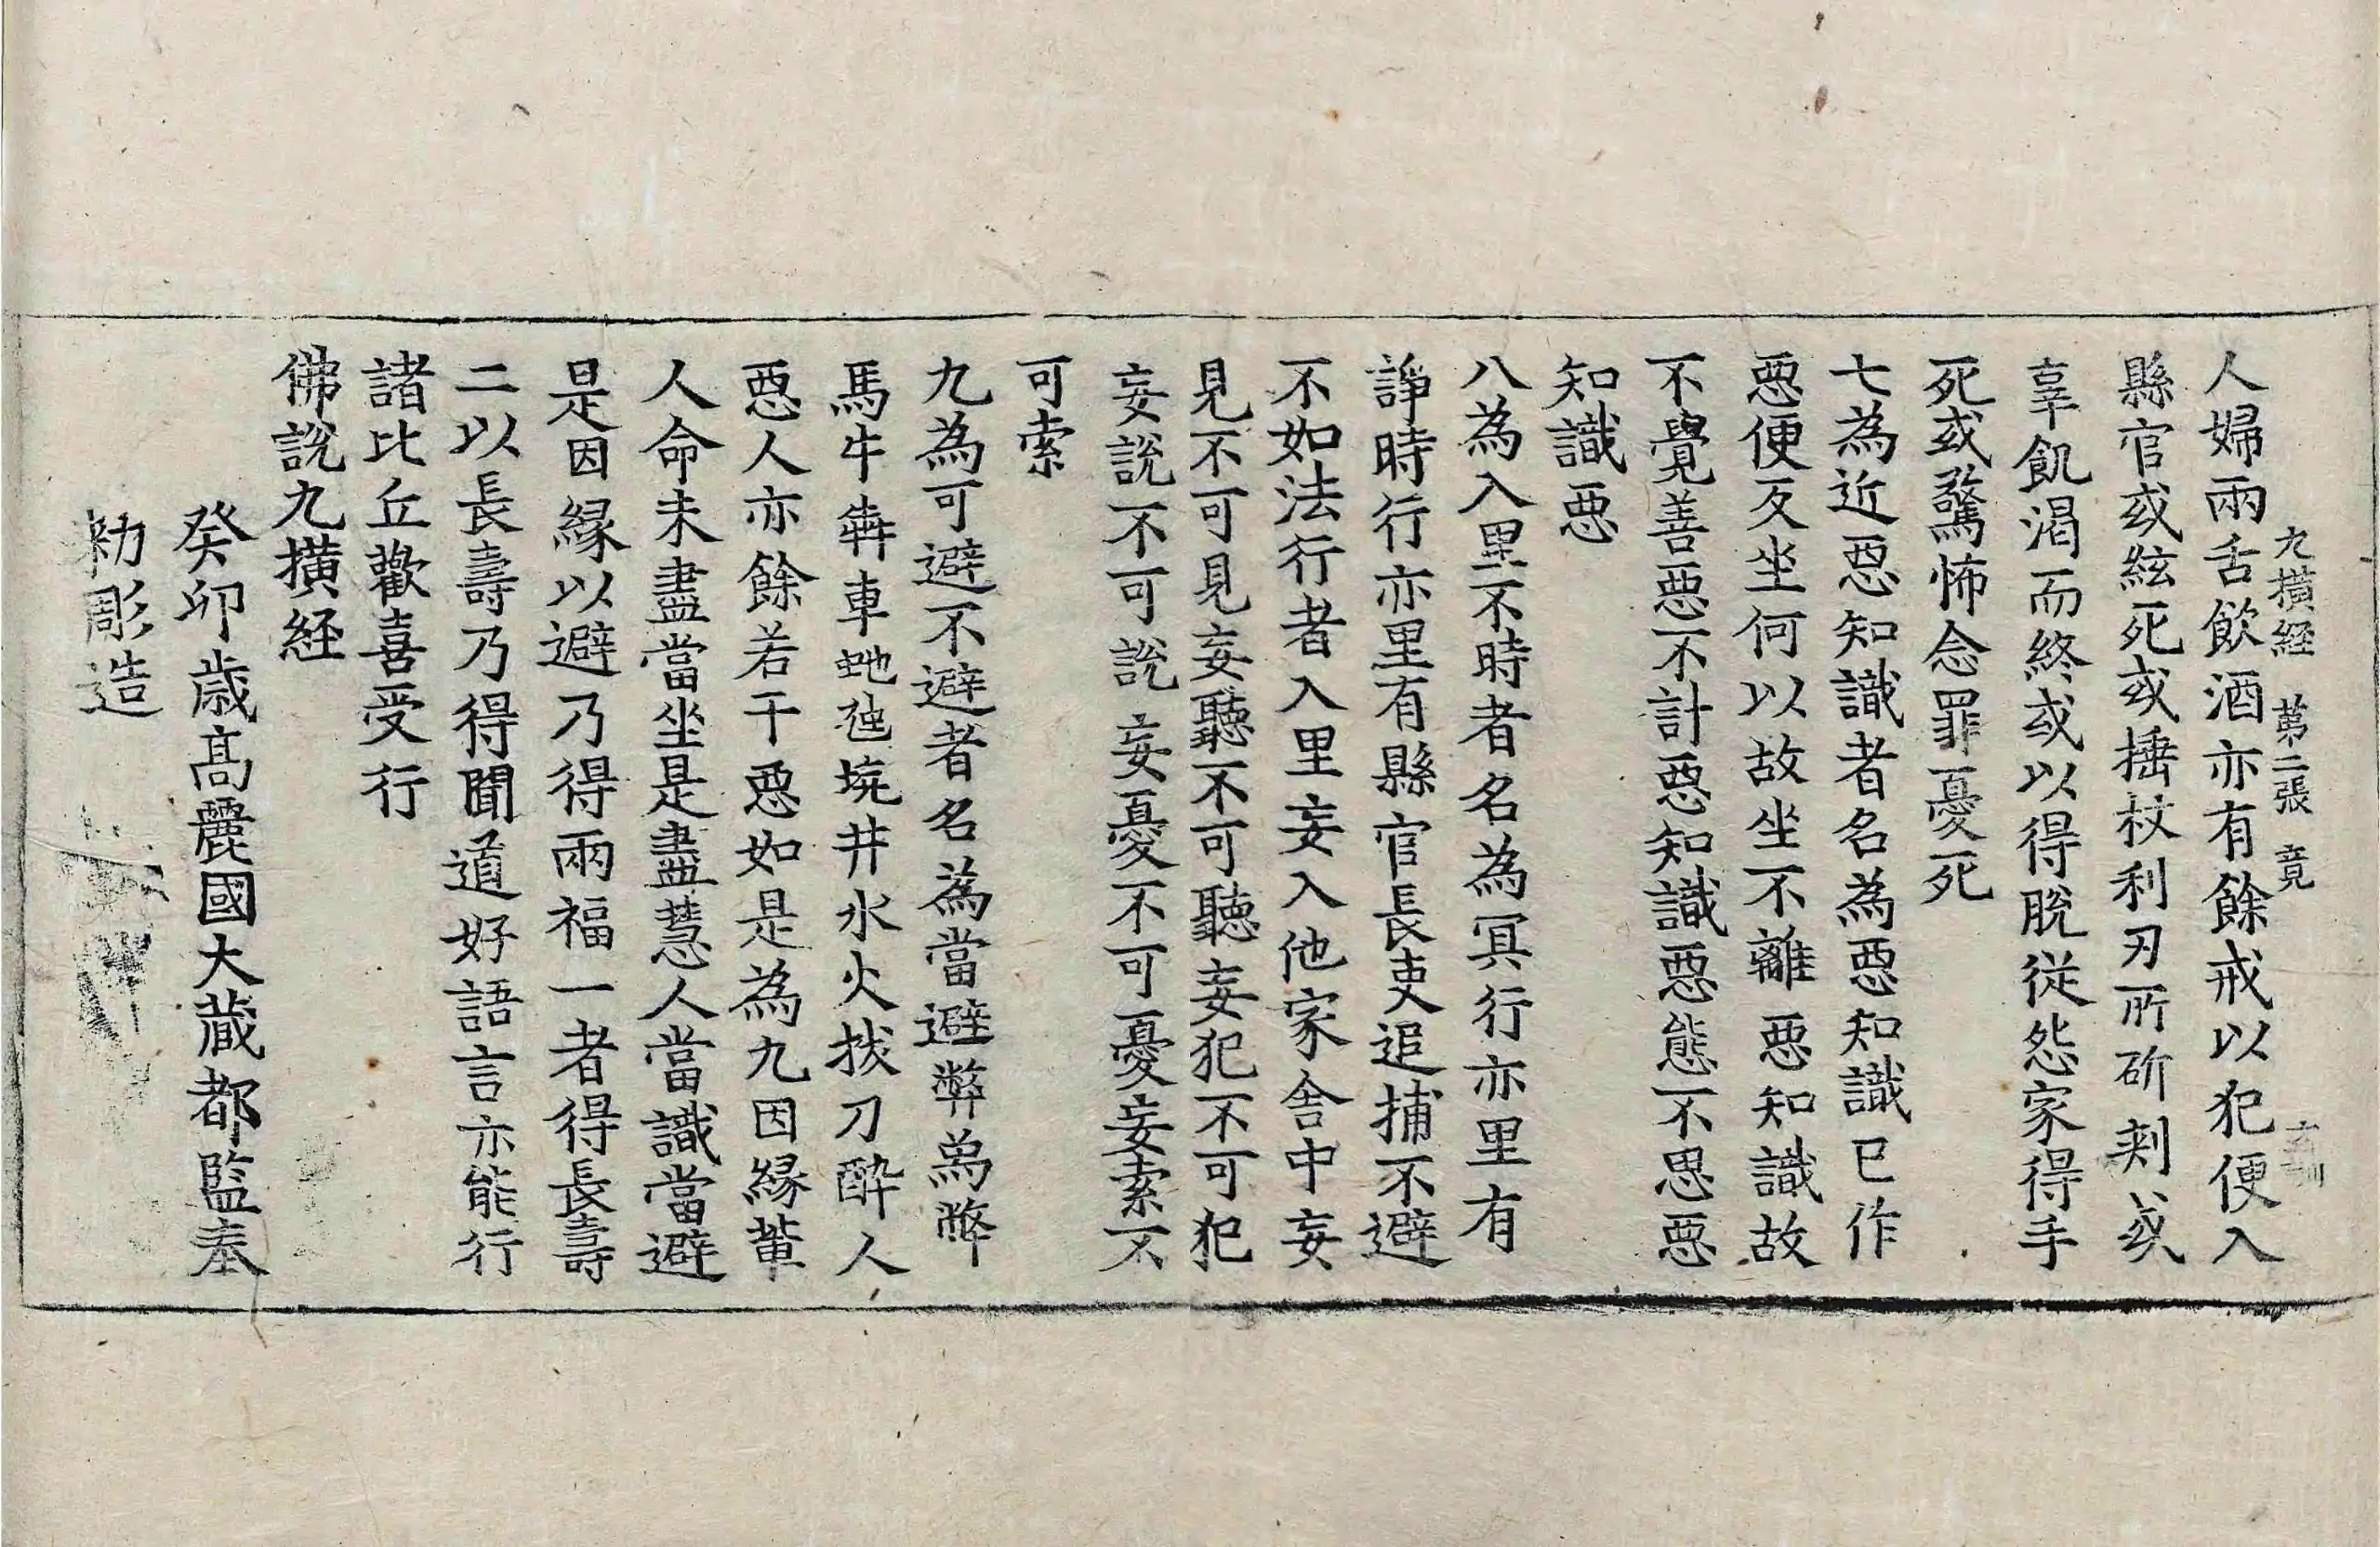 九橫経 第二張 竟
人婦兩舌飲酒亦有餘戒以犯便入
縣官或絃死或捶杖利刃所斫刺或
辜飢渴而終或以得脫從怨家得手
死或驚怖念罪憂死
七為近惡知識者名為惡知識已作
惡便反坐何以故坐不離惡知識故
不覺善惡不計惡知識惡態不思惡
知識惡
八為入里不時者名為冥行亦里有
諍時行亦里有縣官長吏追捕不避
不如法行者入里妄入他家舍中妄
見不可見妄聽不可聽妄犯不可犯
妄說不可說妄憂不可憂妄索不
可索
九為可避不避者名為當避弊象弊
馬牛犇車虵虺坑井水火拔刀醉人
惡人亦餘若干惡如是為九因緣輩
人命未盡當坐是盡慧人當識當避
是因緣以避乃得兩福一者得長壽
二以長壽乃得聞道好語言亦能行
諸比丘歡喜受行
佛說九橫経
癸卯歲高麗國大藏都監奉
勑彫造